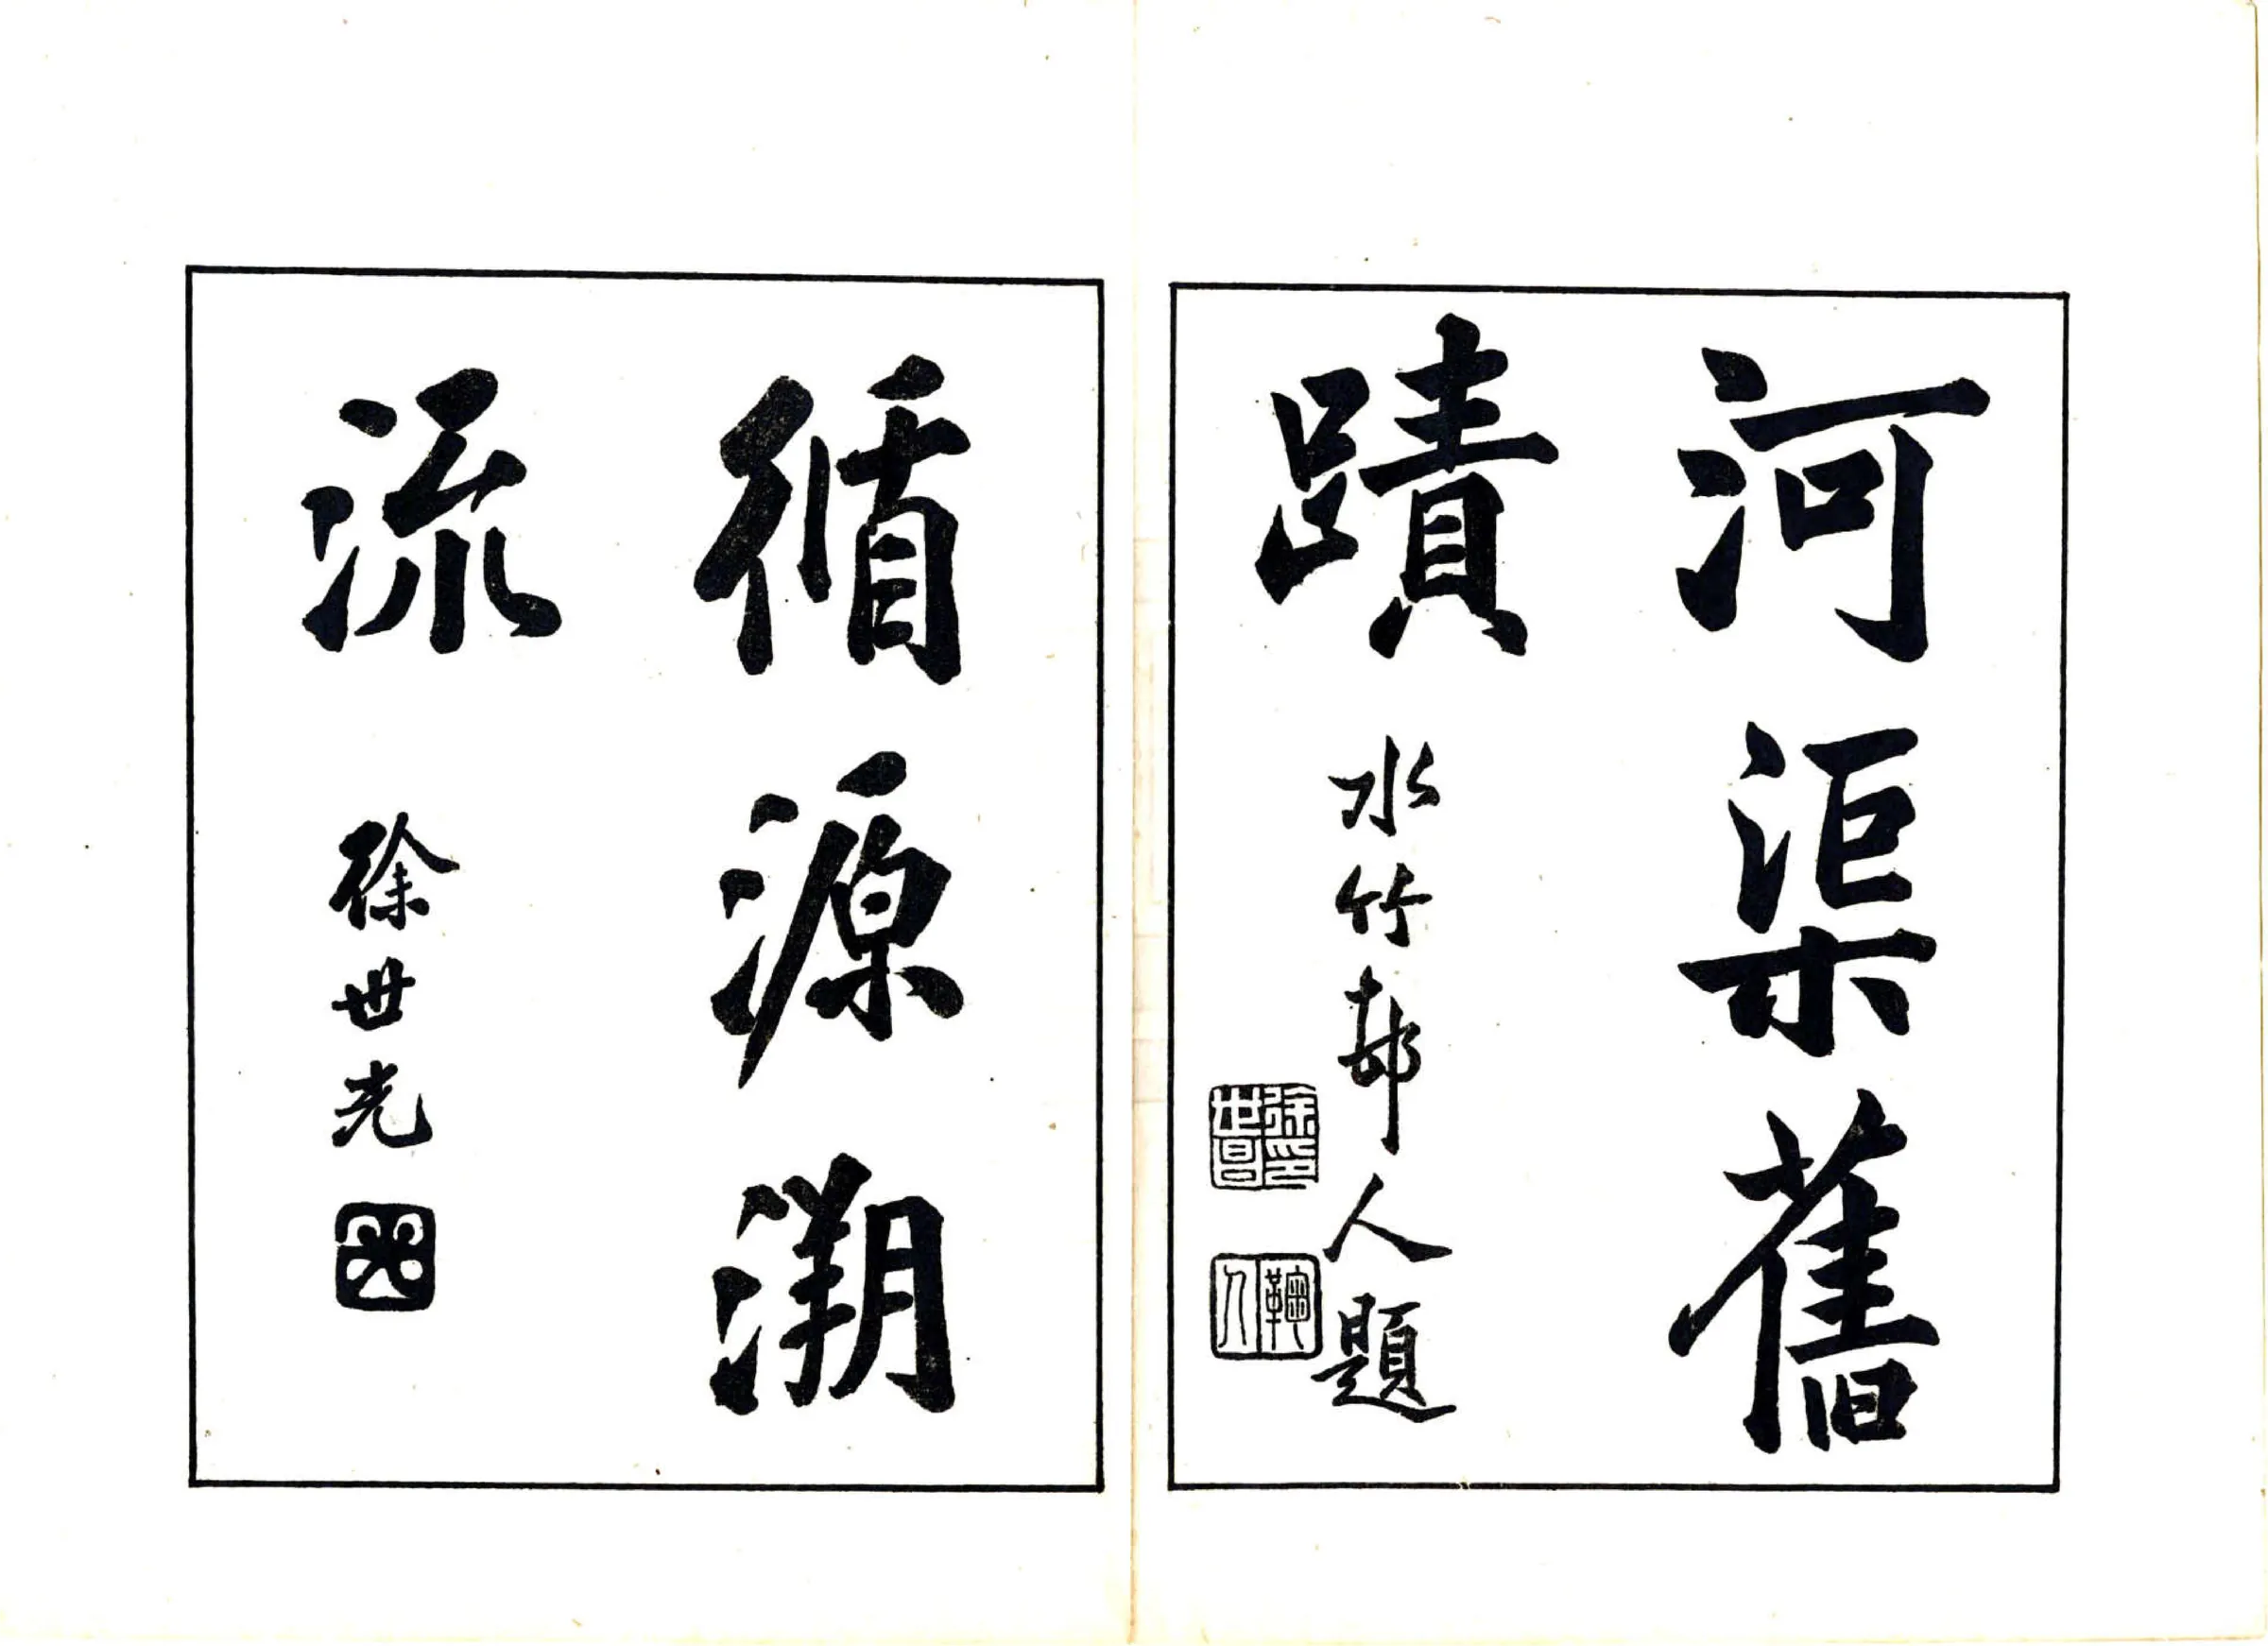 河渠舊
蹟
水竹邨人題
徐世昌印
鞠人
循源溯
流
徐世光